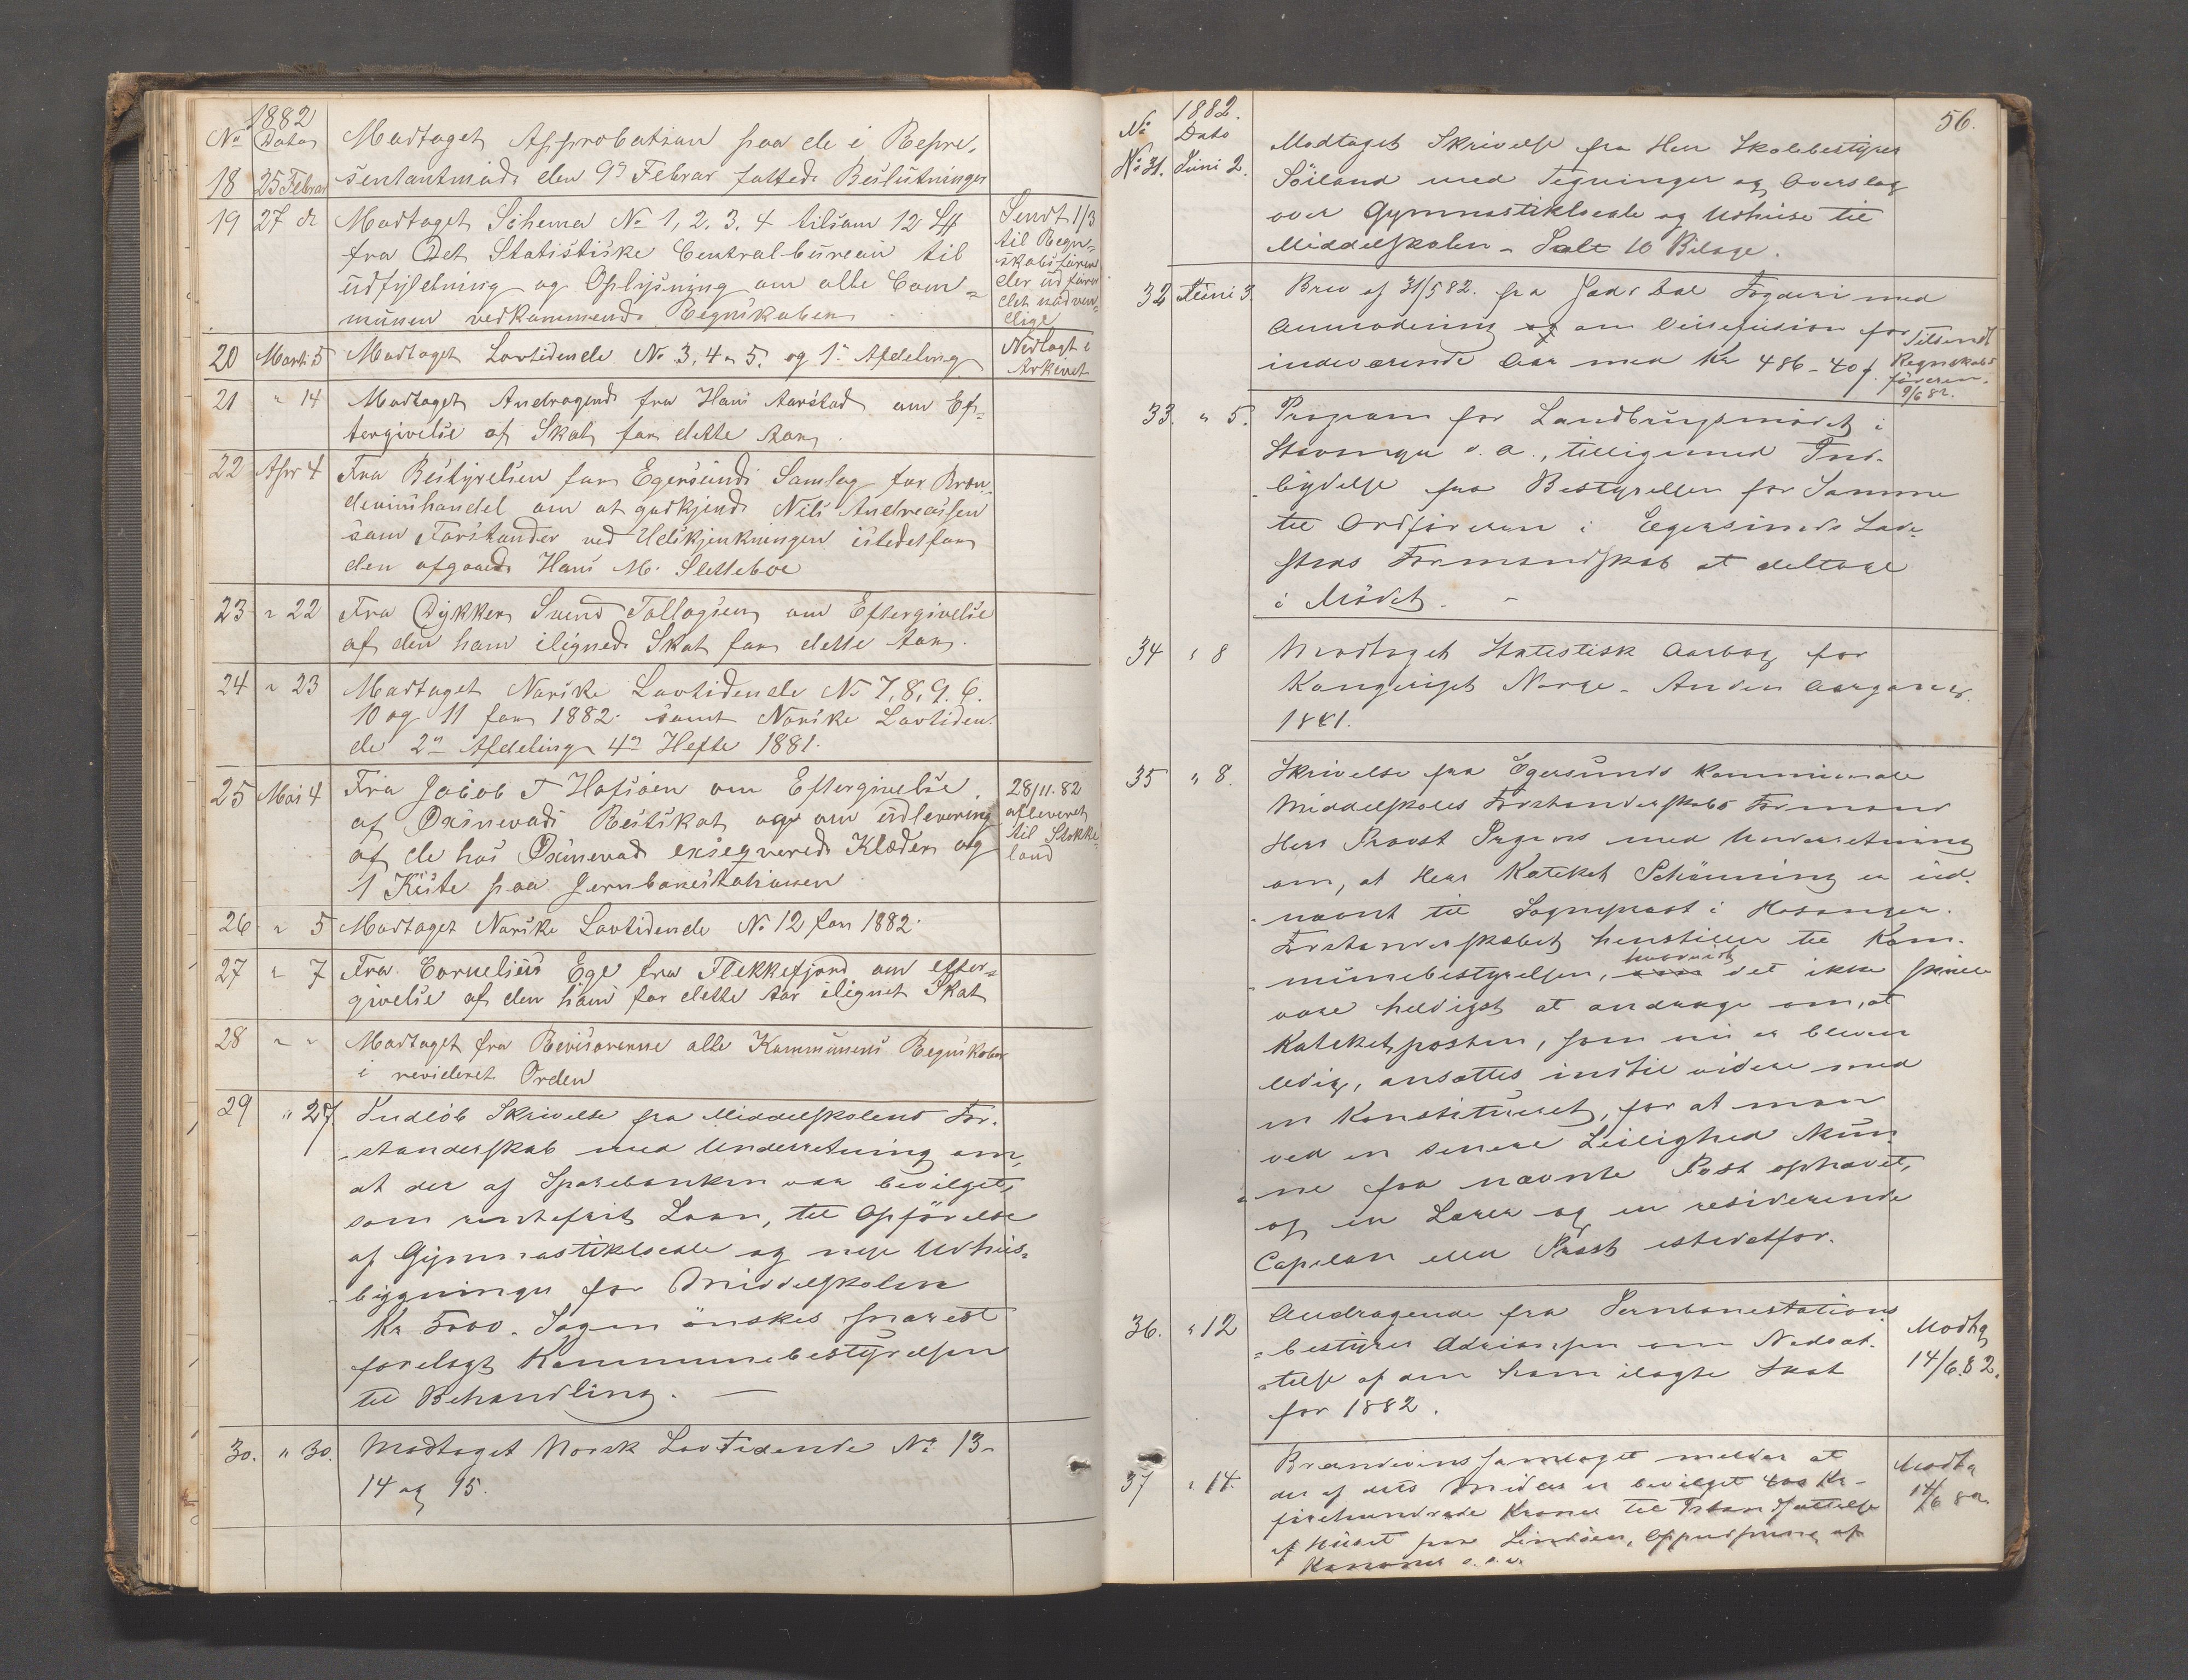 1882
No Dato Modtaget Approbation paa de i Repre-
18 25 Februar sentantmøde den 9de Februar fattede Beslutninger
19 27 do Modtaget Schema No 1, 2, 3, 4 tilsam 12
fra Det Statistiske Central-bureau til
udfyldning og Oplysning om alle Com=
munen vedkommende Regnskaber
Sendt 1/3
til Regn=
skabsføren
der udfører
det nødven-
dige
20 Marts 5 Modtaget Lovtidende No 3, 4 & 5. og 1ste Afdeling
Nedlagt i
Arkivet
21 " 14 Modtaget Andragende fra Hans Aarstad om Ef=
tergivelse af Skat for dette Aar.
22 Apr 4 Fra Bestyrelsen for Egersunds Samlag for Bræn-
deviinshandel om at godkjende Nils Andreassen
som Forstander ved Udskjænkningen istedetfor
den afgaaede Hans M. Sletteboe
23 " 22 Fra Dykker Svend Tollagsen om Eftergivelse
af den ham ilignede Skat for dette Aar.
24 " 23 Modtaget Norske Lovtidende No 7, 8, 9, 6.
10 og 11 for 1882. samt Norske Lovtiden-
de 2den Afdeling 4de Hefte 1881.
25 Mai 4 Fra Jacob T Hofsøen om Eftergivelse
af Oxinevads Restskat og om udlevering
af de hos Oxinevad exseqverede Klæder og
1 Kiste paa Jernbanestationen
28/11.82
afleveret
til Stokke-
land
26 " 5 Modtaget Norske Lovtidende No 12 for 1882.
27 " 7 Fra Cornelius Ege fra Flekkefjord om efter=
givelse af den ham for dette Aar ilignet Skat
28 " " Modtaget fra Revisorerne alle Kommunens Regnskaber
i revideret Orden
29 " 27. Indløb Skrivelse fra Middelskolens For-
standerskab med Underretning om,
at der af Sparebanken var bevilget,
som rentefrit Laan, til Opførelse
af Gymnastiklocale og nye Udhus=
bygninger for Middelskolen
Kr 5000. Sagen ønskes snarest
forelagt Kommunebestyrelsen
til Behandling. —
30. " 30. Modtaget Norsk Lovtidende No 13-
14 og 15.
56.
1882.
No Dato
No 31. Juni 2. Modtaget Skrivelse fra Herr Skolebestyrer
Söiland med Tegninger og Overslag
over Gymnastiklocale og Udhuse til
Middelskolen - Ialt 10 Bilage.
32 Juni 3. Brev af 31/5 82. fra Jæd. & Dal. Fogderi med
Anmodning om Reisefusion for
indeværende Aar med Kr 486 - 40 f.
Tilsendt
Regnskabs
føreren.
9/6 82.
33. " 5. Program for Landbrugsmødet i
Stavanger d. A., tilligemed Ind-
bydelse fra Bestyrelsen for Samme
til Ordføreren i Egersunds Lade-
steds Formandskab at deltage
i Mödet. -
34 " 8 Modtaget Statistisk Aarbog for
Kongeriget Norge - Anden Aargang.
1881.
35 " 8. Skrivelse fra Egersunds Kommunale
Middelskoles Forstanderskabs Formand
Herr Provst Irgens med Underretning
om, at Herr Kateket Schönning er ud-
nævnt til Sogneprest i Hosanger.
Forstanderskabet henstiller til Kom-
munebestyrelsen, hvorvidt det ikke skulle
være heldigst at andrage om, at
Kateketposten, som nu er bleven
ledig, ansættes indtil videre med
en Konstitueret, for at man
ved en senere Leilighed kun-
ne faa nævnte Post ophævet,
og en Lærer og en residerende
Capelan eller Præst istedetfor.
36. " 12 Andragende fra Jernbanestations
bestyrer Adriansen om Nedsæt-
telse af den ham ilagte Skat
for 1882.
Modtg
14/6.82.
37 " 14. Brændevinssamlaget melder at
der af dets Midler er bevilget 400 Kr -
firehundrede Kroner til Istandsættelse
af Huset paa Lindøen, Oppudsning af
Kanoner o.s.v.
Modtg
14/6 82